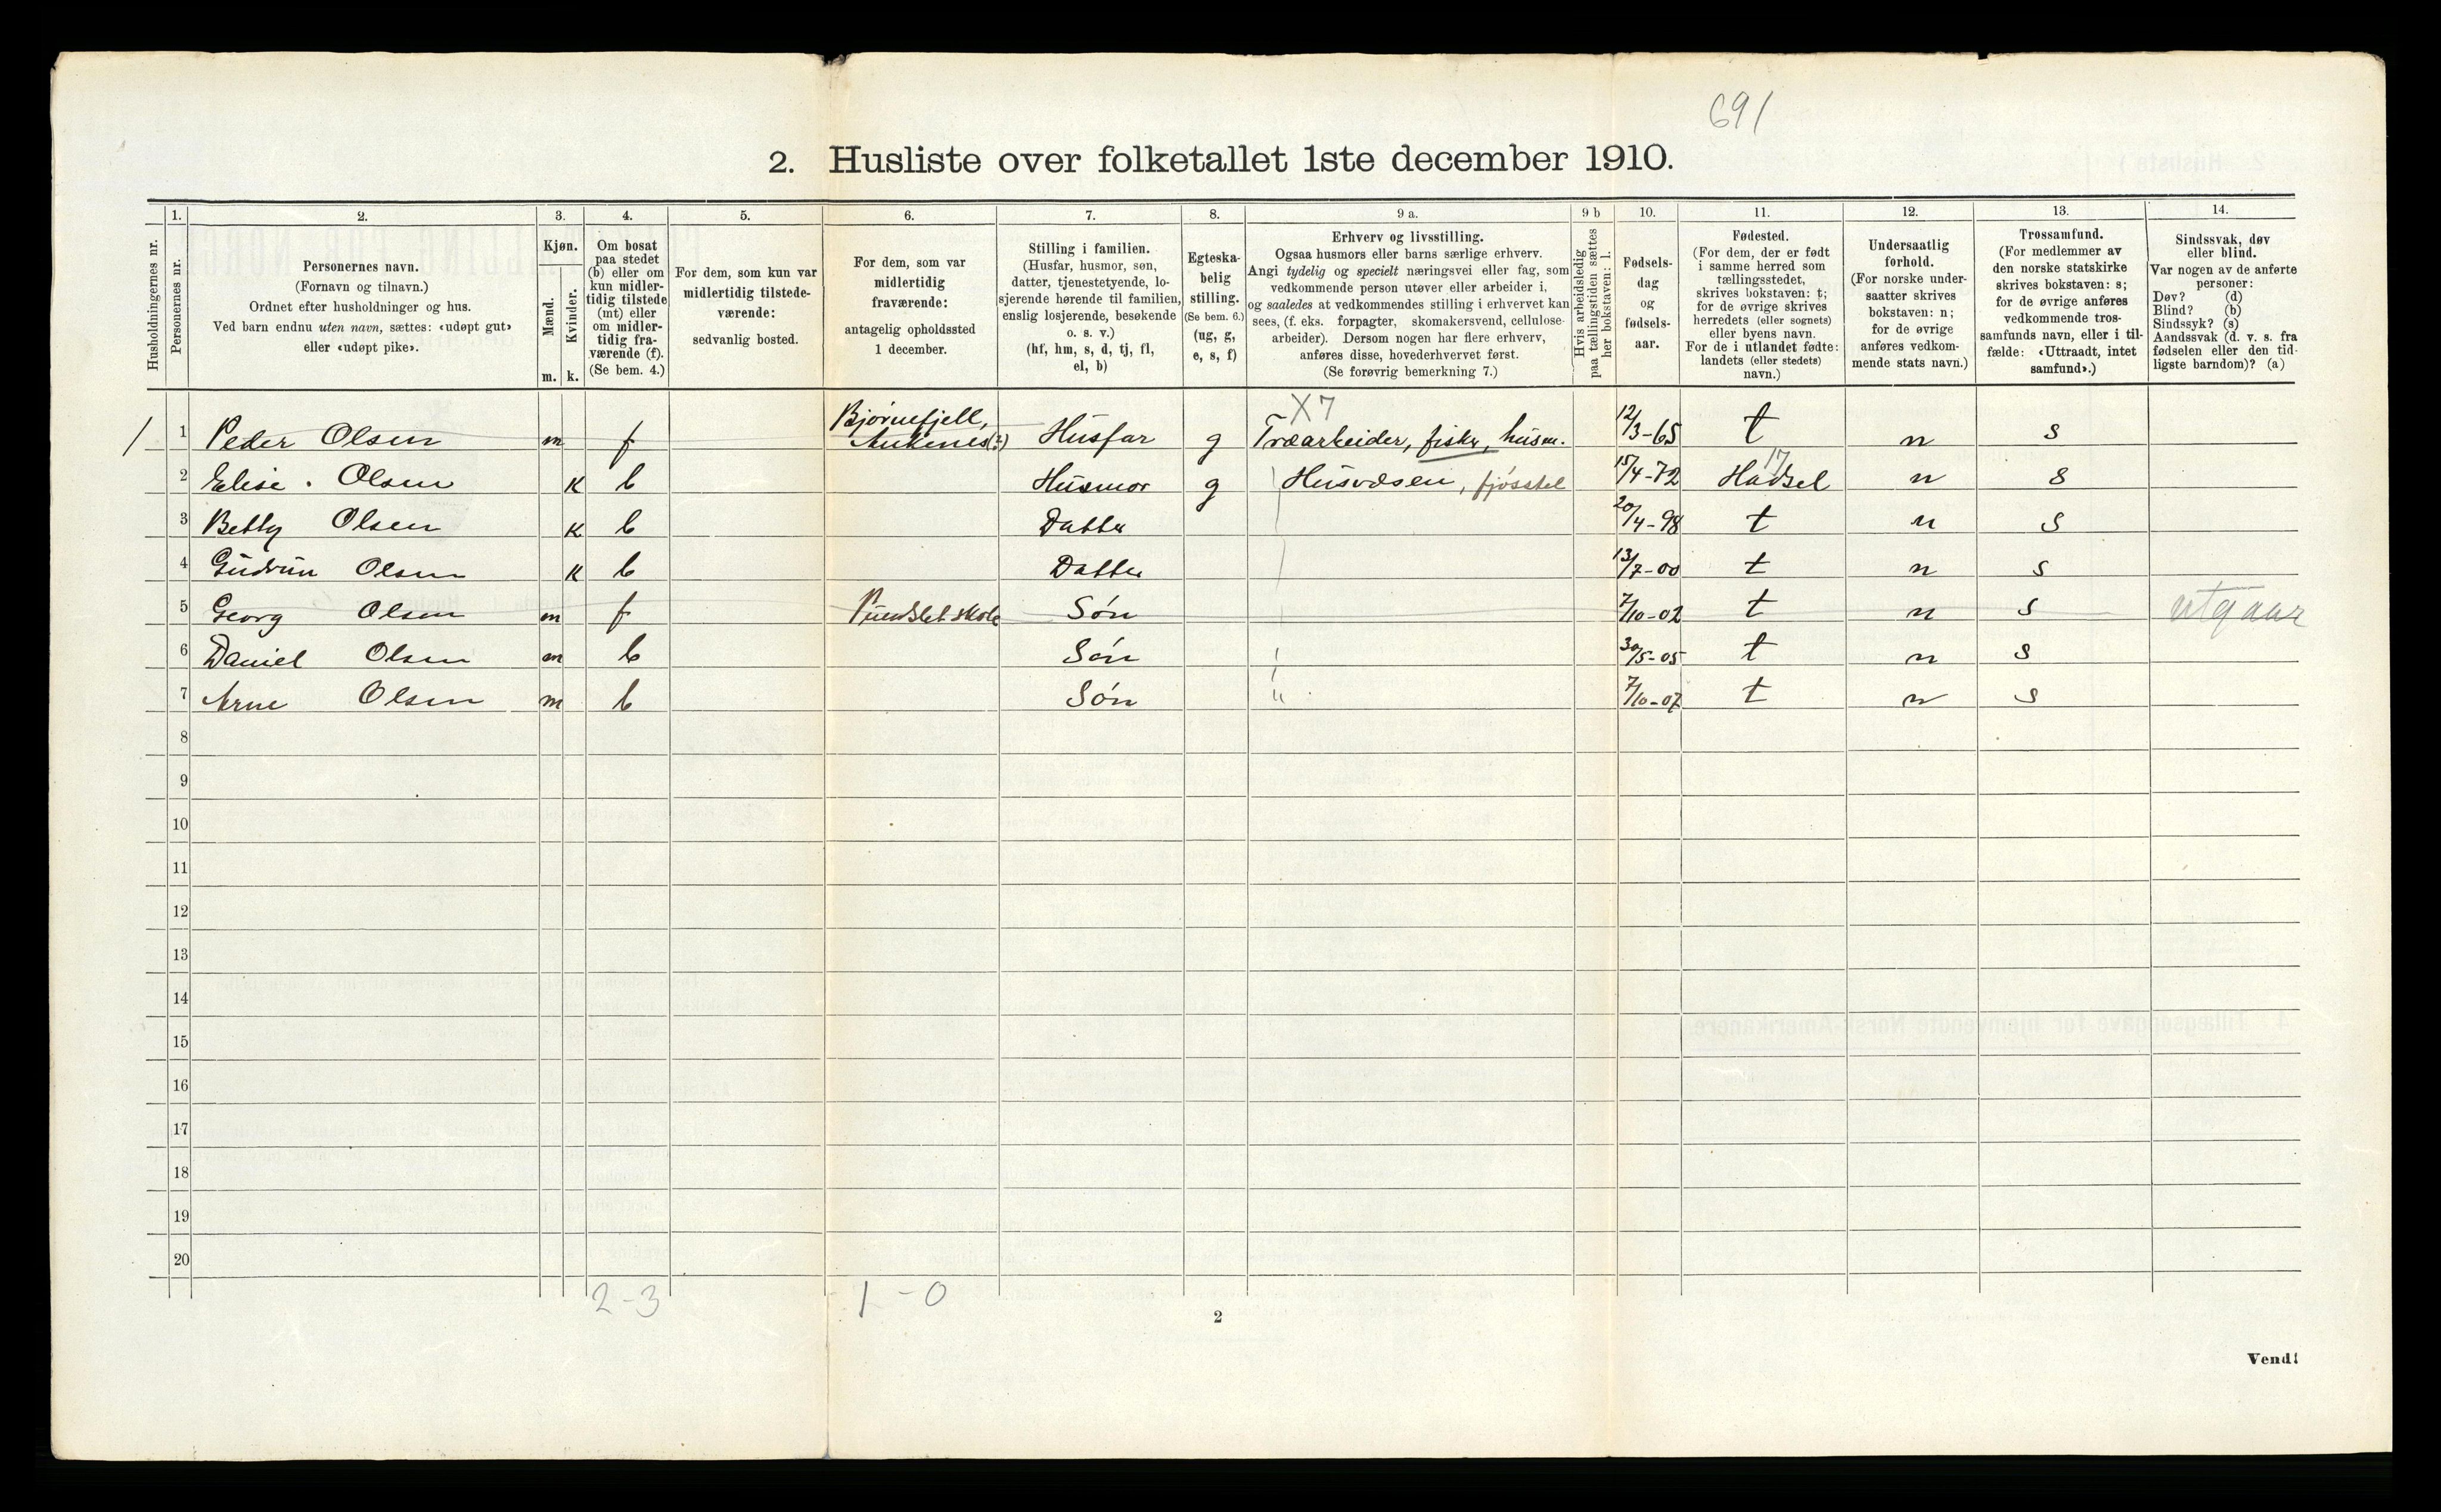 691
2. Husliste over folketallet 1ste december 1910.
Husholdningernes nr.
1. Personernes nr.
2. Personernes navn.
(Fornavn og tilnavn.)
Ordnet efter husholdninger og hus.
Ved barn endnu uten navn, sættes: «udøpt gut»
eller «udøpt pike».
3. Kjøn.
Mænd. m.
Kvinder. k.
4. Om bosat
paa stedet
(b) eller om
kun midler-
tidig tilstede
(mt) eller
om midler-
tidig fra-
værende (f).
(Se bem. 4.)
5. For dem, som kun var
midlertidig tilstede-
værende:
sedvanlig bosted.
6. For dem, som var
midlertidig
fraværende:
antagelig opholdssted
1 december.
7. Stilling i familien.
(Husfar, husmor, søn,
datter, tjenestetyende, lo-
sjerende hørende til familien,
enslig losjerende, besøkende
o. s. v.)
(hf, hm, s, d, tj, fl,
el, b)
8. Egteska-
belig
stilling.
(Se bem. 6.)
(ug, g,
e, s, f)
9 a. Erhverv og livsstilling.
Ogsaa husmors eller barns særlige erhverv.
Angi tydelig og specielt næringsvei eller fag, som
vedkommende person utøver eller arbeider i,
og saaledes at vedkommendes stilling i erhvervet kan
sees, (f. eks. forpagter, skomakersvend, cellulose-
arbeider). Dersom nogen har flere erhverv,
anføres disse, hovederhvervet først.
(Se forøvrig bemerkning 7.)
9 b Hvis arbeidsledig
paa tællingstiden sættes
her bokstaven: l.
10. Fødsels-
dag
og
fødsels-
aar.
11. Fødested.
(For dem, der er født
i samme herred som
tællingsstedet,
skrives bokstaven: t;
for de øvrige skrives
herredets (eller sognets)
eller byens navn.
For de i utlandet fødte:
landets (eller stedets)
navn.)
12. Undersaatlig
forhold.
(For norske under-
saatter skrives
bokstaven: n;
for de øvrige
anføres vedkom-
mende stats navn.)
13. Trossamfund.
(For medlemmer av
den norske statskirke
skrives bokstaven: s;
for de øvrige anføres
vedkommende tros-
samfunds navn, eller i til-
fælde: «Uttraadt, intet
samfund».)
14. Sindssvak, døv
eller blind.
Var nogen av de anførte
personer:
Døv? (d)
Blind? (b)
Sindssyk? (s)
Aandssvak (d. v. s. fra
fødselen eller den tid-
ligste barndom)? (a)
X 7
1 1 Peder Olsen m f Bjørnefjell, Ankenes(?) Husfar g Træarbeider, fisker, husm. 12/3-65 t n s
2 Elise. Olsen K b Husmor g Husvæsen, fjøsstel 15/4-72 Hadsel 17 n s
3 Betty Olsen K b Datter 20/4-98 t n s
4 Gudrun Olsen K b Datter 13/7-00 t n s
5 Georg Olsen m f Pundslet skole Søn 7/10-02 t n s utgaar
6 Daniel Olsen m b Søn 30/5-05 t n s
7 Arne Olsen m b Søn " 7/10-07 t n s
8
9
10
11
12
13
14
15
16
17
18
19
20
2-3 1-0
2
Vend!